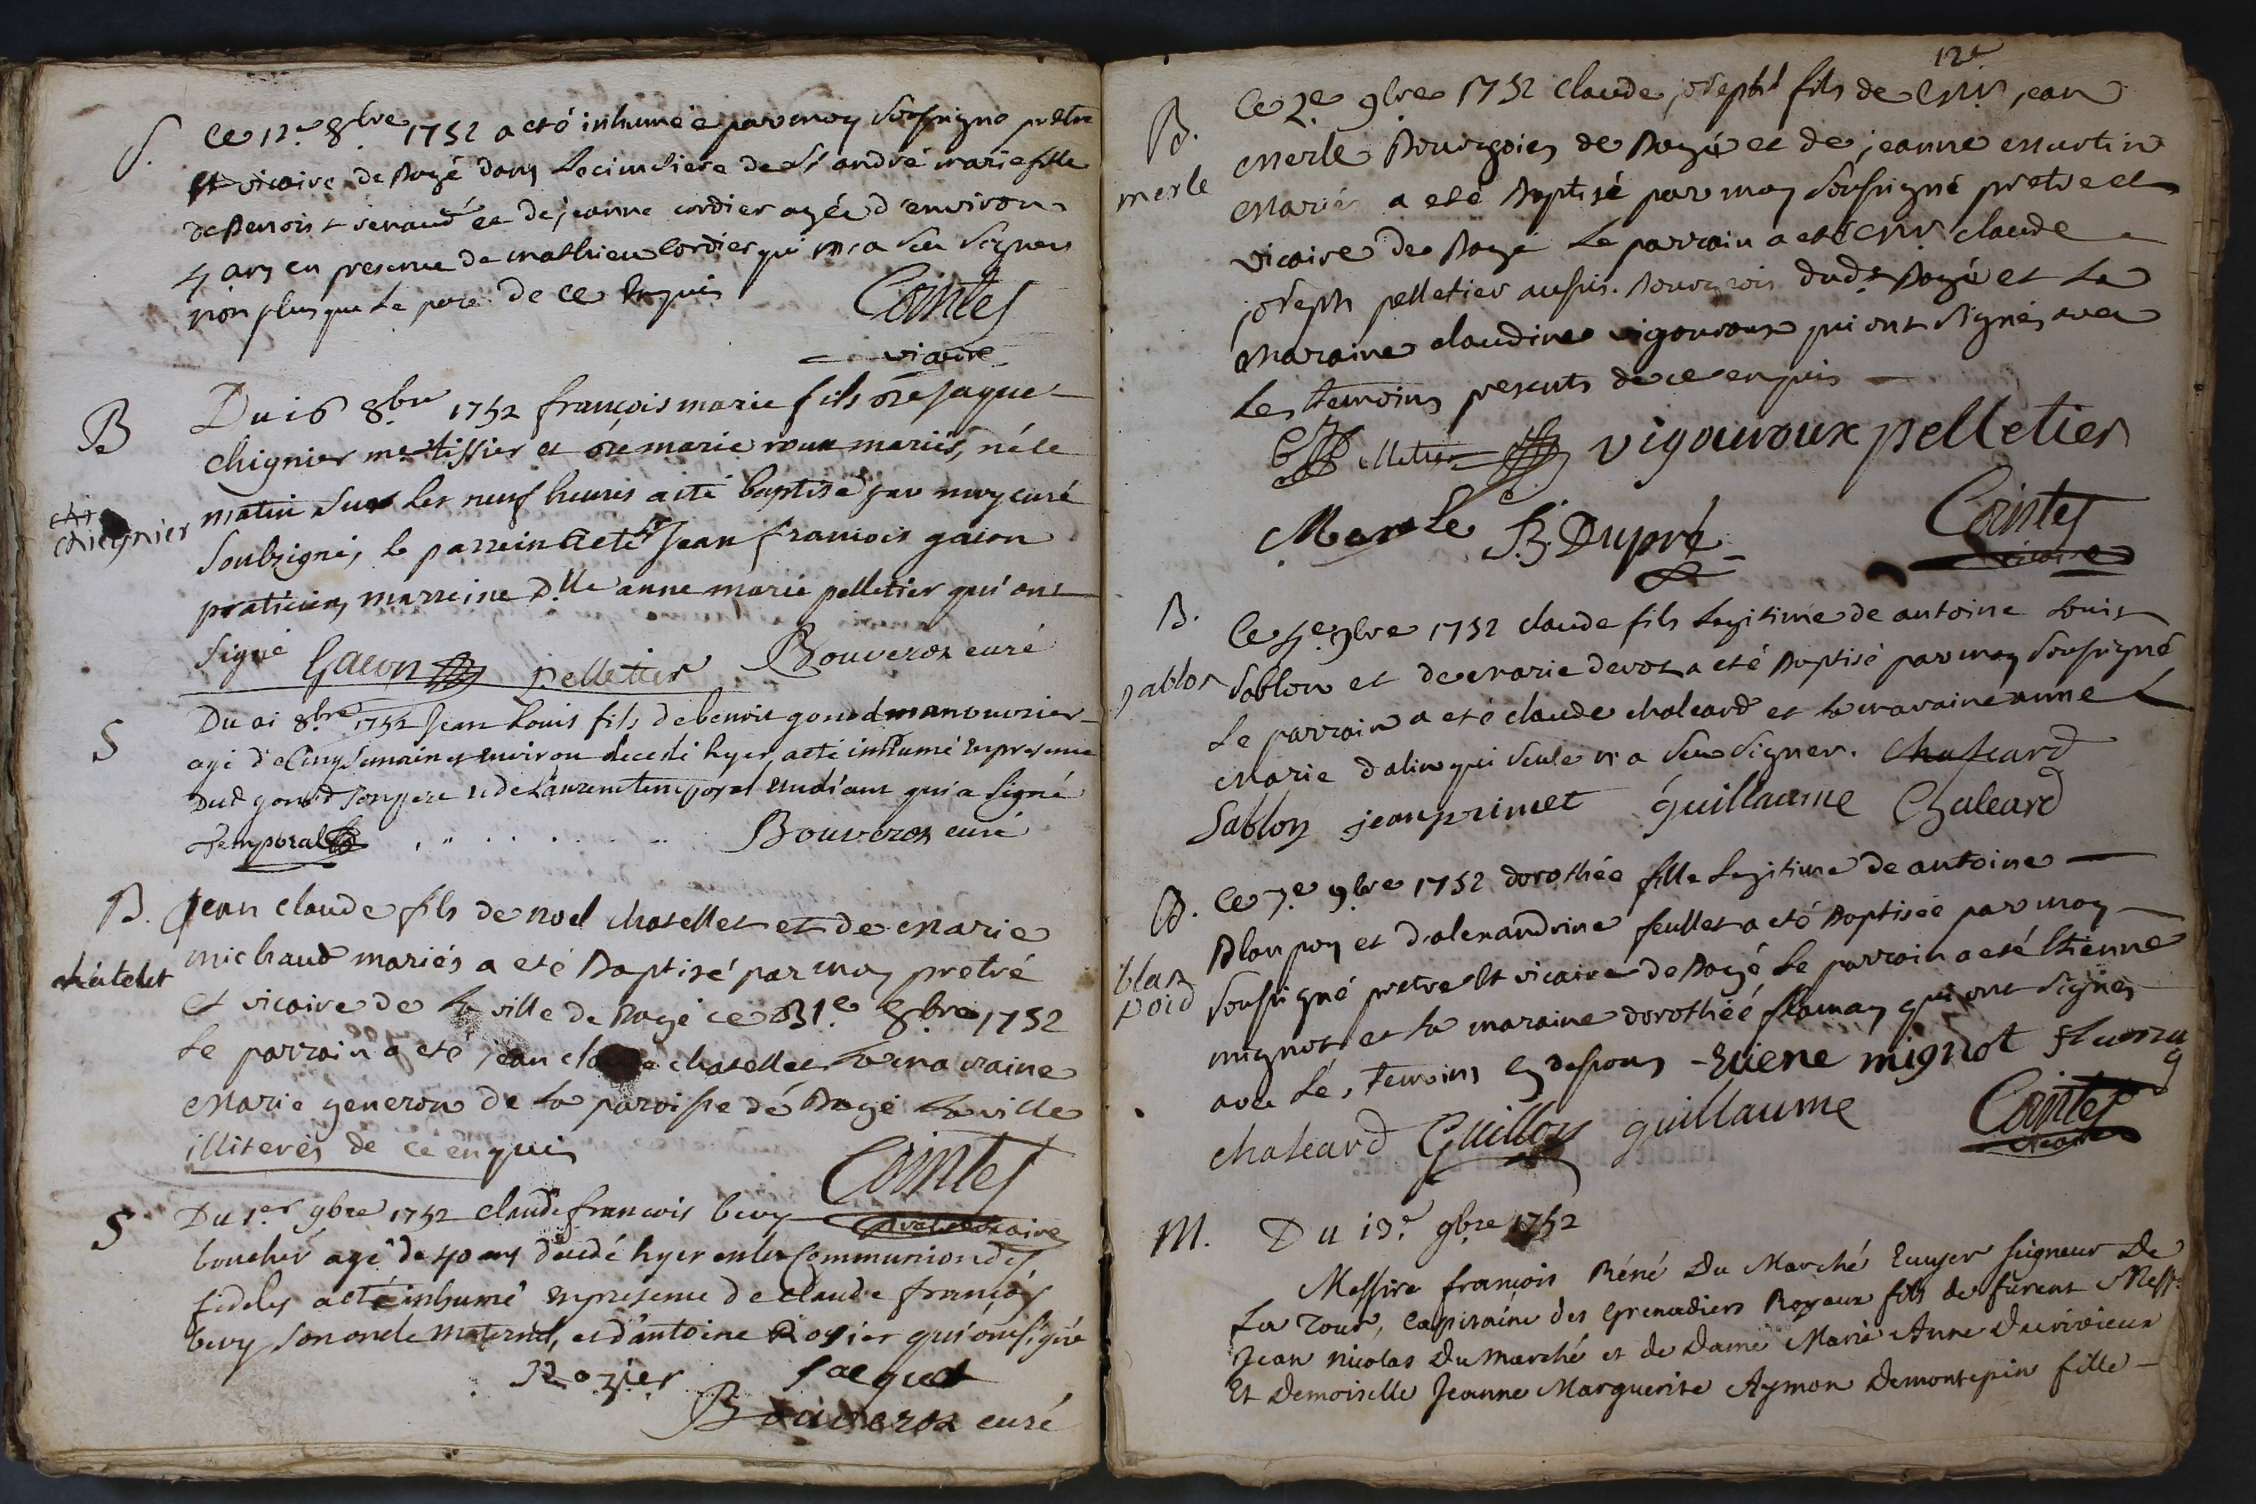 S. Ce 12e 8bre 1752 a eté inhumée par moy soussigné pretre
et vicaire de Bagé dans le cimetiere de St andré marie fille
de Benoist renaud et de jeanne cordier agée d'environ
4 ans en presence de mathieu Cordier qui n'a sceu signer
non plus que le pere de ce enquis
Cointet
vicaire
B Du 16 8bre 1752 françois marie fils de Jaque
chignier me tissier et de marie roux mariés, né le
matin sur les neuf heures a été baptisé par moy curé
Chiegnier
soubsigné, le parrein a eté Sr Jean françois gacon
praticien, marreine Dlle anne marie pelletier qui ont
signé Gacon pelletier Bouveron curé
S Du 21 8bre 1752 Jean Louis fils de benoit gonod manouvrier
agé de Cinq semaines environ decedé hyer, a été inhumé en presence
dud gonod son pere et de Laurent temporal etudiant qui a signé
Temporal Bouveron curé
B. Jean claude fils de noel chatellet et de marie
michaud mariés a eté Baptisé par moy pretre
châtelet
et vicaire de la ville de Bagé ce 31e 8bre 1752
Le parrain a eté jean claude chatellet la maraine
Marie generon de la paroisse de Bagé la ville
illiterés de ce enquis
Cointet
pretre vicaire
S Du 1er 9bre 1752 claude francois bevy
boucher agé de 40 ans decedé hyer en la Communion des
fideles a eté inhumé en presence de claude françois
bevy son oncle maternel, et d'antoine Rozier qui ont signé
Rozier Jacquet
Bouveron curé
12e
B. Ce 2e 9bre 1752 claude joseph fils de Mr jean
merle
Merle Bourgois de Bagé et de jeanne Martin
Mariés a eté Baptisé par moy soussigné pretre et
vicaire de Bagé Le parrain a eté Mr claude
joseph pelletier aussi Bourgois dudt Bagé et la
Maraine claudine vigouroux qui ont signés avec
Les temoins presents de ce enquis
Pelletier vigouroux pelletier
Merle Dupré Cointet
vicaire
B. Ce 4e 9bre 1752 claude fils Legitime de antoine Louis
sablon
Sablon et de marie devot a eté Baptisé par moy soussigné
Le parrain a eté claude chaleard et la maraine anne
Marie dalin qui seule n'a sceu signer. Chaleard
Sablon jean primet guillaume Chaleard
B. Ce 7e 9bre 1752 dorothée fille Legitime de antoine
Blanpoy et d'alexandrine feuillet a eté Baptisée par moy
blan
poid
soussigné pretre et vicaire de Bagé le parrain a eté Etienne
mignot et la maraine dorothée flamay qui ont signés
avec Les temoins cy dessous Etiene mignot
chaleard Guillon guillaume Cointet
vicaire
M. Du 13e 9bre 1752
Messire françois Réné Du Marché Ecuyer seigneur De
La Tour, Capitaine des Grenadiers Royaux fils de furent Messe
Jean Nicolas Du marché et de Dame Marie Anne Ducrivieux
Et Demoiselle Jeanne Marguerite Aymon Demontepin fille